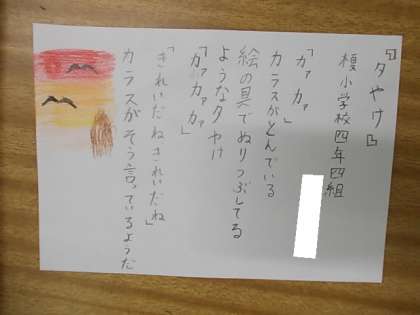 『夕やけ』
榎小学校四年四組
「カァ カァ」
カラスがとんでいる
絵の具でぬりつぶしてる
ような夕やけ
「カァカァカァ」
「きれいだねきれいだね」
カラスがそう言っているようだ